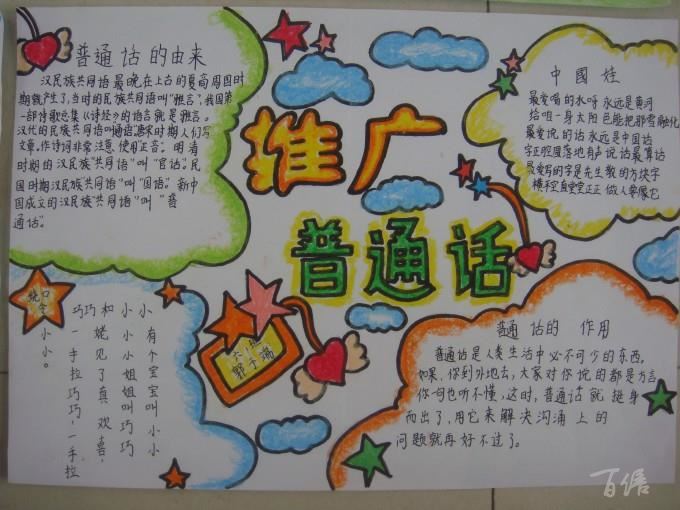 普通话的由来
汉民族共同语最晚在上古的夏商周时
期就产生了,当时的民族共同语叫“雅言”,我国第
一部诗歌总集《诗经》的语言就是雅言。
汉代的民族共同语叫通语。唐宋时期人们写
文章,作诗词非常注意使用“正音”。明清
时期的汉民族“共同语”叫“官话”。民
国时期汉民族“共同语”叫“国语”。新中
国成立的汉民族“共同语”叫“普
通话”。
推广
普通话
中國娃
最爱喝的水呀永远是黄河
给咱一身太阳色能把那雪融化
最爱说的话永远是中国话
字正腔圆落地有声说话最算话
最爱写的字是先生教的方块字
横平竖直堂堂正正做人要像它
绕口令:
小小。
小有个宝宝叫小小
小小小姐姐叫巧巧
和姥见了真欢喜,
巧一手拉巧巧,一手拉
普通话的 作用
普通话是人类生活中必不可少的东西。
如果,你到外地去,大家对你说的都是方言
你一句也听不懂,这时,普通话就挺身
而出了,用它来解决沟通上的
问题就再好不过了。